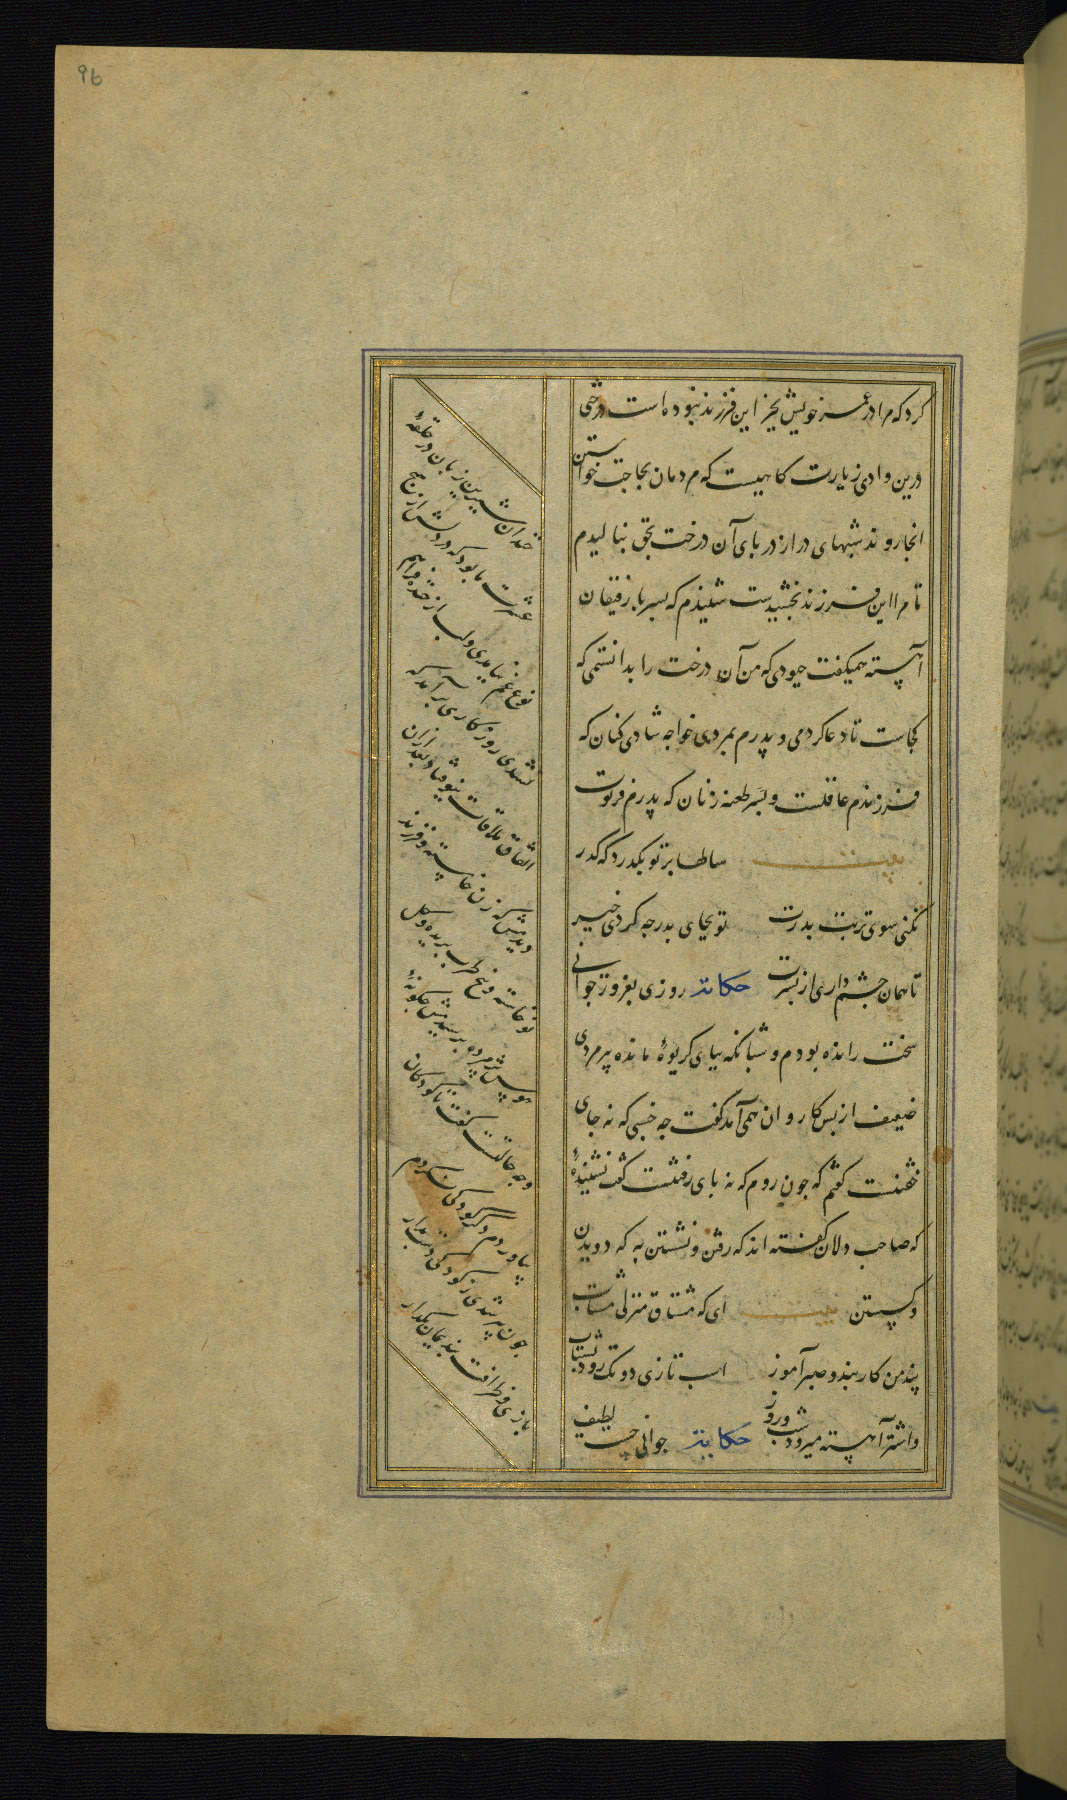 96
کرد که مرا در عمر خویش بجز این فرزند نبوده است درختی
درین وادی زیارت کاهیست که مردمان بحاجت خواستن
انجا روند شبهای دراز در بای آن درخت بحق بنالیدم
تا مرا این فرزند بخشیدست شنیدم که بسر با رفیقان
آهسته همیکفت جبودی که من آن درخت را بدانستمی که
کجاست تا دعا کردمی و بدرم بمردی خواجه شادی کنان که
فرزندم عاقلست و بسر طعنه زنان که بدرم فرتوت
بیت سالها بر تو بکذرد که کذر
نکنی سوی تربت بدرت تو بجای بدر جه کردی خیر
تا همان جشم داری از بسرت حکایت روزی بغرور جوانی
سخت رانده بودم و شبانکه بپای کریوهٔ مانده پیر مردی
ضعیف از بس کاروان همی آمد کفت جه خسبی که نه جای
خفتنست کفتم که جون روم که نه بای رفتنست کفت نشنیدهٔ
که صاحب دلان کفته اند که رفتن و نشستن به که دویدن
و کسستن بیت ای که مشتاق منزلی مشتاب
پند من کار بند و صبر آموز اسب تازی دو تک رود بشتاب
و اشتر آهسته میرود شب و روز حکایت جوانی جست لطیف
خندان شیرین زبان در حلقهٔ
عشرت ما بود که در دلش از هیج
نوع غم نیامدی و لب از خنده فراهم
نشدی روزکاری برآمد که
اتفاق ملاقات نیوفتاد بعد ازان
دیدمش که زن خاسته و فرزند
نو خاسته و بیخ طرب بریده و کل
هوس بژمرده برسیدمش جکونهٔ
و جه حالتست کفت تا کودکان
بیاوردم دکر کودکی نکردم
جون پیر شدی ز کودکی دست بدار
بازی و ظرافت بندیمان بکذار